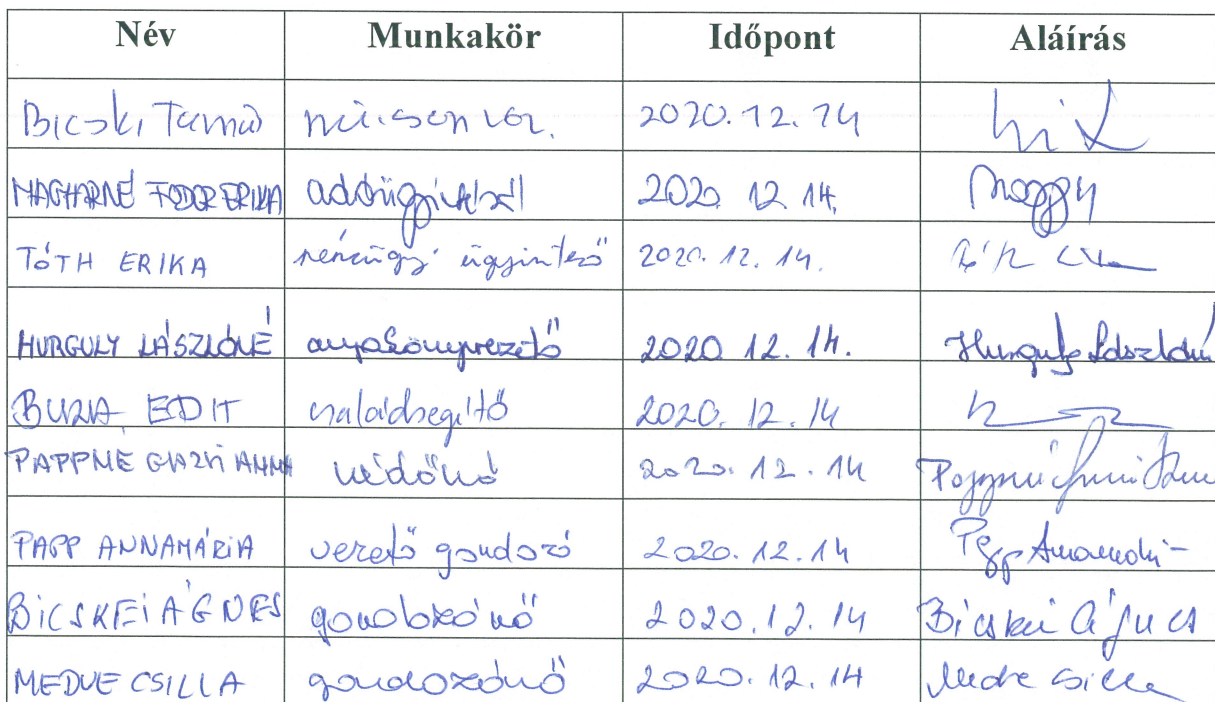 Név Munkakör Időpont Aláírás
Bicski Tamás 2020.12.14
MAGYARNÉ FODOR ERIKA adóügyi 2020. 12 14.
TÓTH ERIKA pénzügyi ügyintéző 2020. 12. 14.
HURGULY LÁSZLÓNÉ anyakönyvvezető 2020 12. 14. Hurguly Lászlóné
EDIT családsegítő 2020. 12. 14
PAPPNÉ ANNA védőnő 2020. 12. 14
PAPP ANNAMÁRIA vezető gondozó 2020. 12. 14 Papp Annamária
BICSKEI ÁGNES gondozónő 2020. 12. 14 Bicskei Ágnes
MEDVE CSILLA gondozónő 2020. 12. 14 Medve Csilla